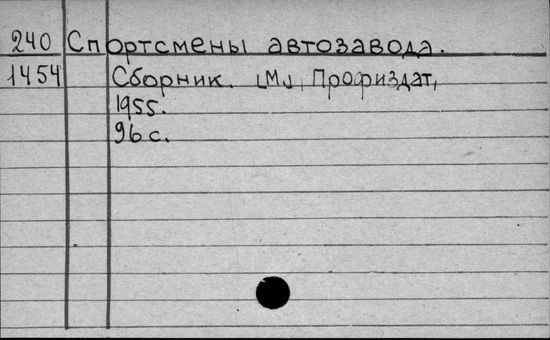 240 Спортсмены автозавода.
1454 Сборник. [М.], Профиздат,
1955.
96 с.